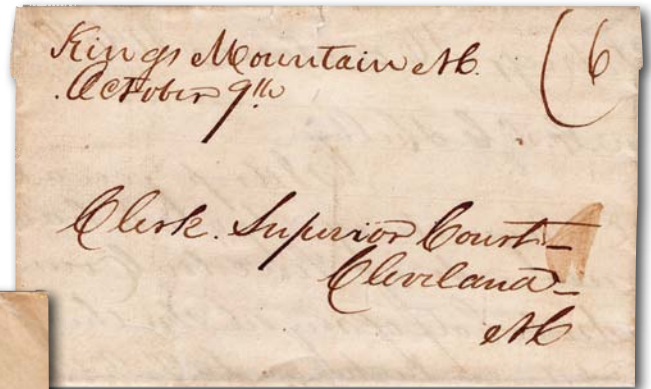 Kings Mountain NC.
October 9th
(6
Clerk. Superior Court -
Cleveland -
NC